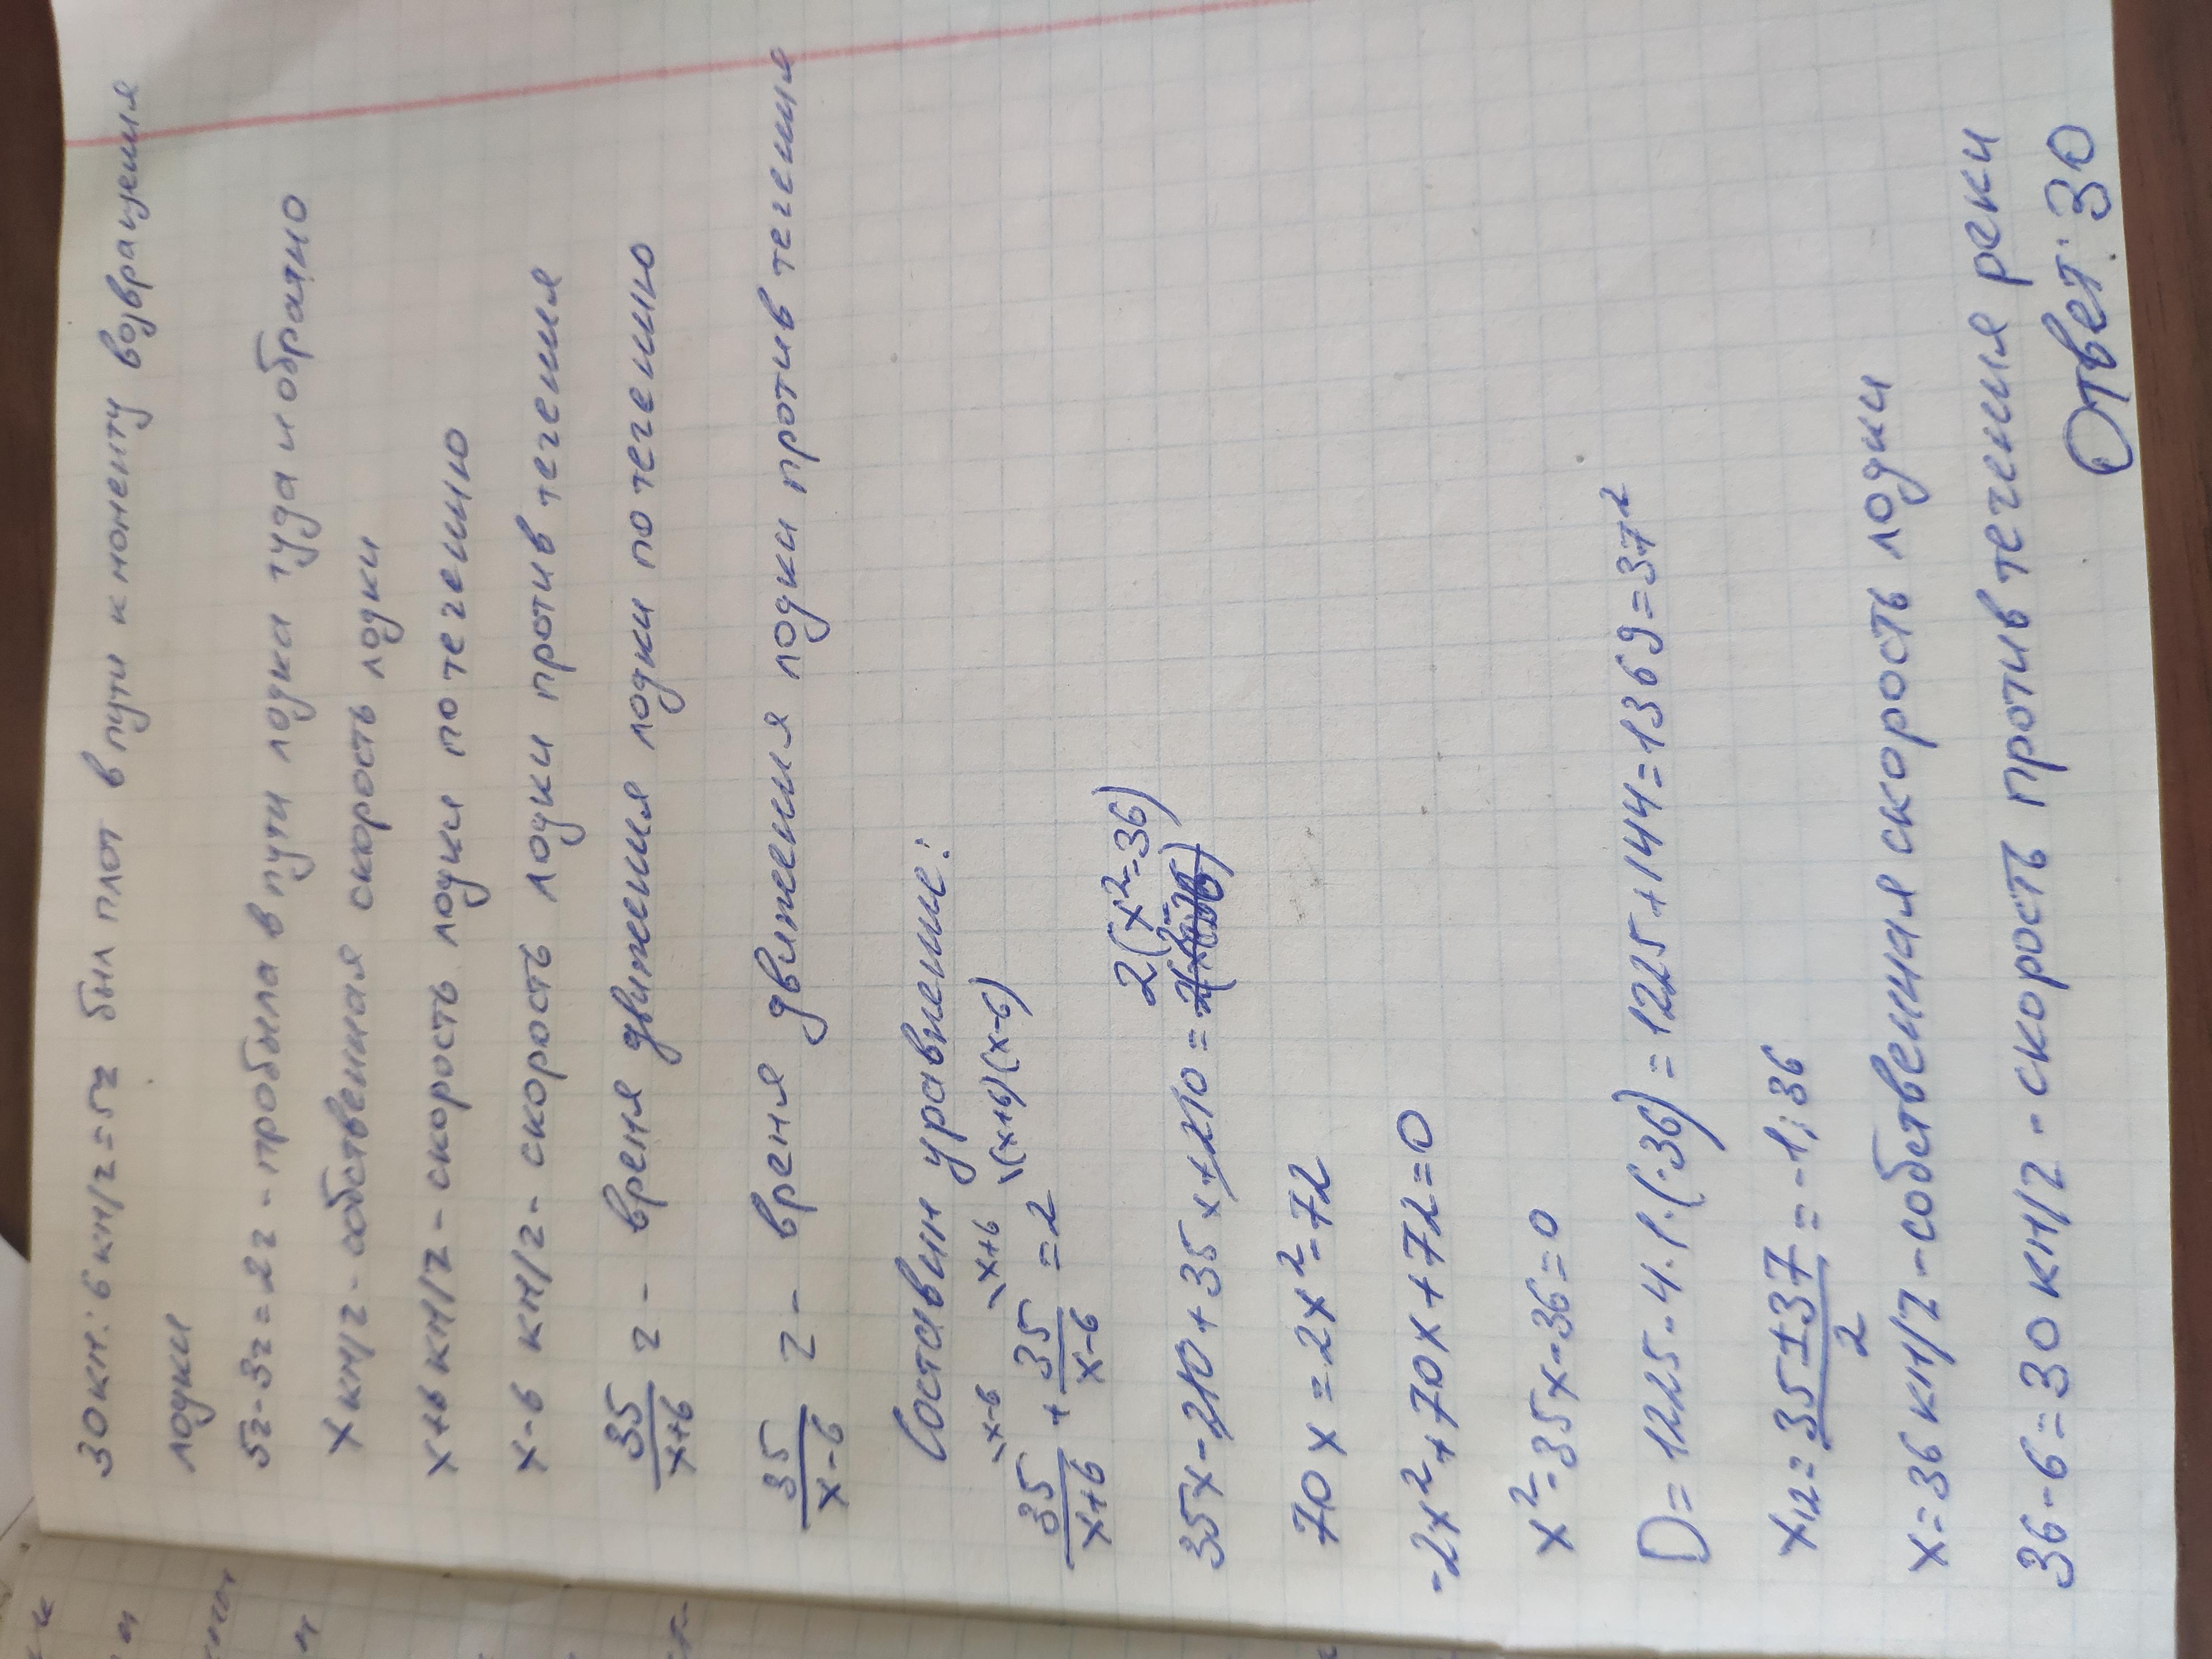 30 км : 6 км/ч = 5ч был плот в пути к моменту возвращения
лодки
5ч - 3ч = 2ч - пробыла в пути лодка туда и обратно
х км/ч - собственная скорость лодки
х+6 км/ч - скорость лодки по течению
х-6 км/ч - скорость лодки против течения
35/(х+6) ч - время движения лодки по течению
35/(х-6) ч - время движения лодки против течения
Составим уравнение:
35/(х+6) \х-6 + 35/(х-6) \х+6 = 2 \(х+6)(х-6)
35х - 210 + 35х + 210 = 2(х²-36)
70х = 2х² - 72
-2х² + 70х + 72 = 0
х² - 35х - 36 = 0
D = 1225 - 4·1·(-36) = 1225 + 144 = 1369 = 37²
х₁,₂ = (35±37)/2 = -1; 36
х = 36 км/ч - собственная скорость лодки
36 - 6 = 30 км/ч - скорость против течения реки
Ответ: 30